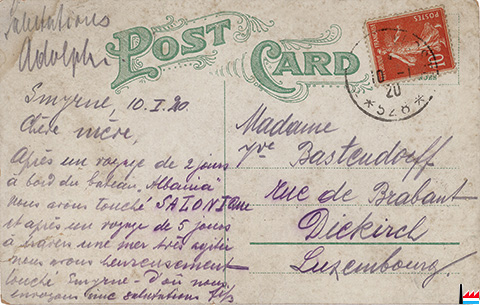 Salutations
Adolphe
POST CARD
POSTES
10
10 - 1
20
* 528 *
Smyrne, 10.I.20
Chère mère,
Après un voyage de 2 jours
à bord du bateau Albania
nous avons touché SALONIQUE
et après un voyage de 5 jours
à travers une mer très agitée
nous avons heureusement
touché Smyrne - d'où nous
envoyons une salutations
Madame
Vve Bastendorff
Rue de Brabant
Diekirch
Luxembourg.